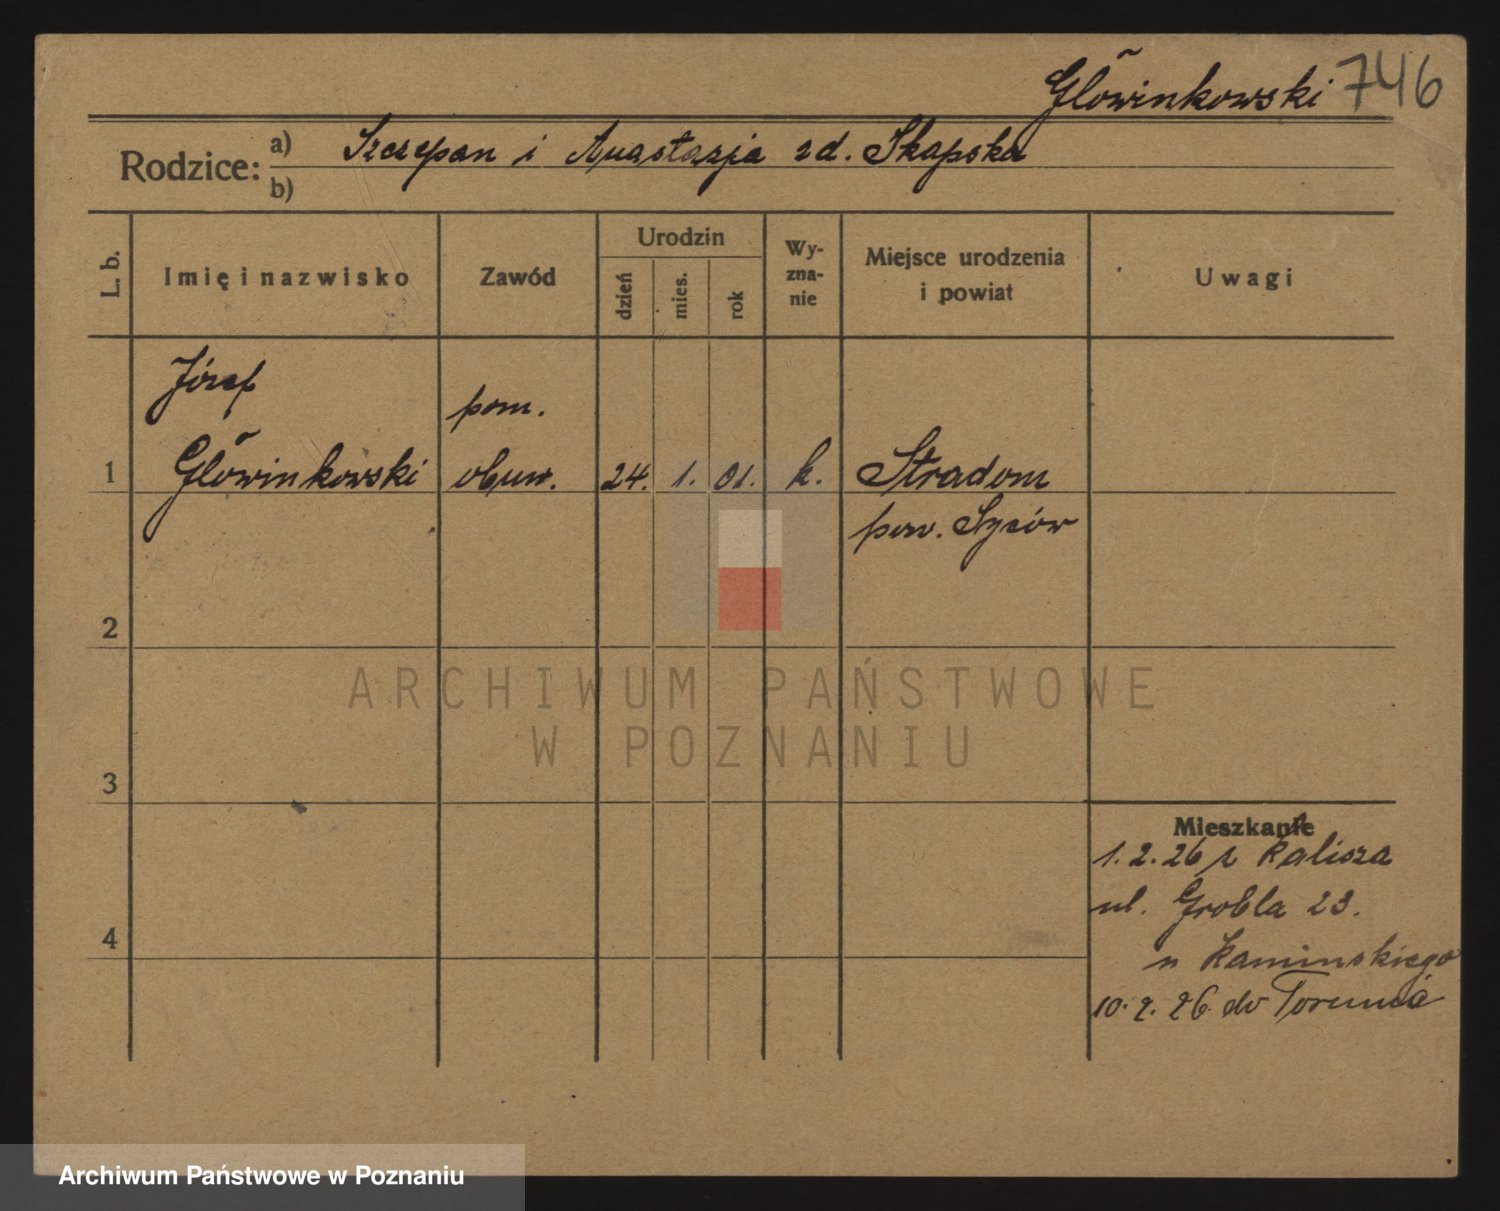 Głowinkowski 746
Rodzice: a) Szczepan i Anastazja zd. Skapska
b)
L. b.
Imię i nazwisko
Zawód
Urodzin
dzień
mies.
rok
Wy-
zna-
nie
Miejsce urodzenia
i powiat
Uwagi
Józef
pom.
1 Głowinkowski obuw. 24. 1. 01. k. Stradom
pow. Syców
2
3
4
Mieszkanie
1. 2. 26 z Kalisza
ul. Grobla 23.
u Kaminskiego
10. 2. 26 do Torunia
ARCHIWUM PAŃSTWOWE
W POZNANIU
Archiwum Państwowe w Poznaniu